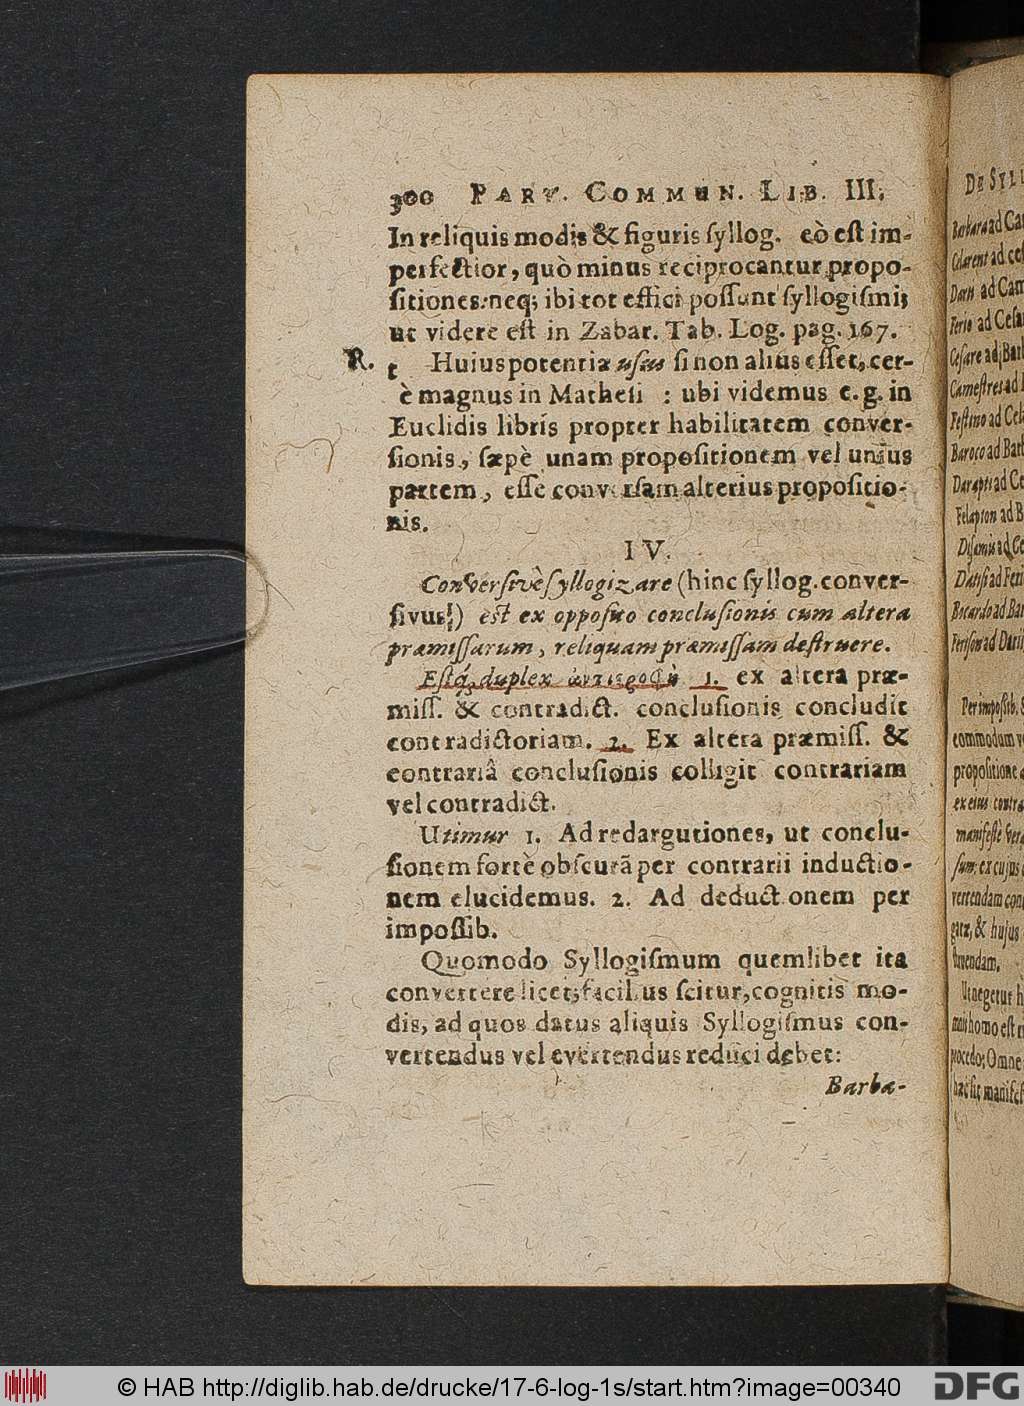 300 PART. COMMUN. LIB. III.
In reliquis modis & figuris ſyllog. eò eſt im-
perfectior, quò minus reciprocantur propo-
ſitiones: neq; ibi tot effici poſſunt ſyllogiſmi;
ut videre eſt in Zabar. Tab. Log. pag. 167.
R. Huius potentiæ uſus ſi non alius eſſet, cer-
t
è magnus in Matheſi : ubi videmus e. g. in
Euclidis libris propter habilitatem conver-
ſionis, ſæpè unam propoſitionem vel unius
partem, eſſe converſam alterius propoſitio-
nis.
IV.
Converſivè ſyllogizare (hinc ſyllog. conver-
ſivus!) eſt ex oppoſito concluſionis cum altera
præmiſſarum, reliquam præmiſſam deſtruere.
Eſtq́; duplex ἀντιϛροφὴ 1. ex altera præ-
miſſ. & contradict. concluſionis concludit
contradictoriam. 2. Ex altera præmiſſ. &
contrariâ concluſionis colligit contrariam
vel contradict.
Utimur 1. Ad redargutiones, ut conclu-
ſionem fortè obſcurã per contrarii inductio-
nem elucidemus. 2. Ad deduct onem per
impoſſib.
Quomodo Syllogiſmum quemlibet ita
convertere licet, facilius ſcitur, cognitis mo-
dis, ad quos datus aliquis Syllogiſmus con-
vertendus vel evertendus reduci debet:
Barba-
DE SYLL
Barbara ad Ca
Celarent ad ce
Darii ad Cam
Ferio ad Ceſa
Ceſare ad Barb
Cameſtres ad
Feſtino ad Cel
Baroco ad Barb
Darapti ad Ce
Felapton ad B
Diſamis ad Ce
Datiſi ad Feri
Bocardo ad Bar
Feriſon ad Darii
Per impoſſib.
commodum v
propoſitione
ex eius contra
manifeſtè ver
ſum; ex cujus
vertendam con
gatæ, & hujus
ſtruendam.
Ut negetur h
mnis homo eſt
procedo; Omne
hæc ſit manifeſ
© HAB http://diglib.hab.de/drucke/17-6-log-1s/start.htm?image=00340
DFG